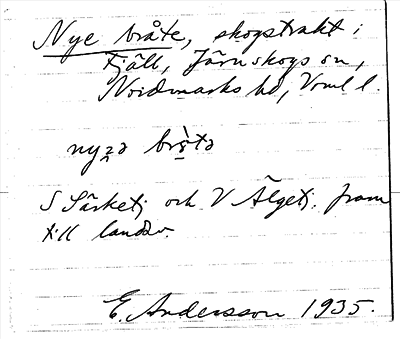 Nye bråte, skogstrakt i
Fjäll, Järnskogs sn,
Nordmarks hd, Vrml l.
nyʒə brɷ̀tə
S Särketj. och V Älgetj. fram
till landsv.
E. Andersson 1935.